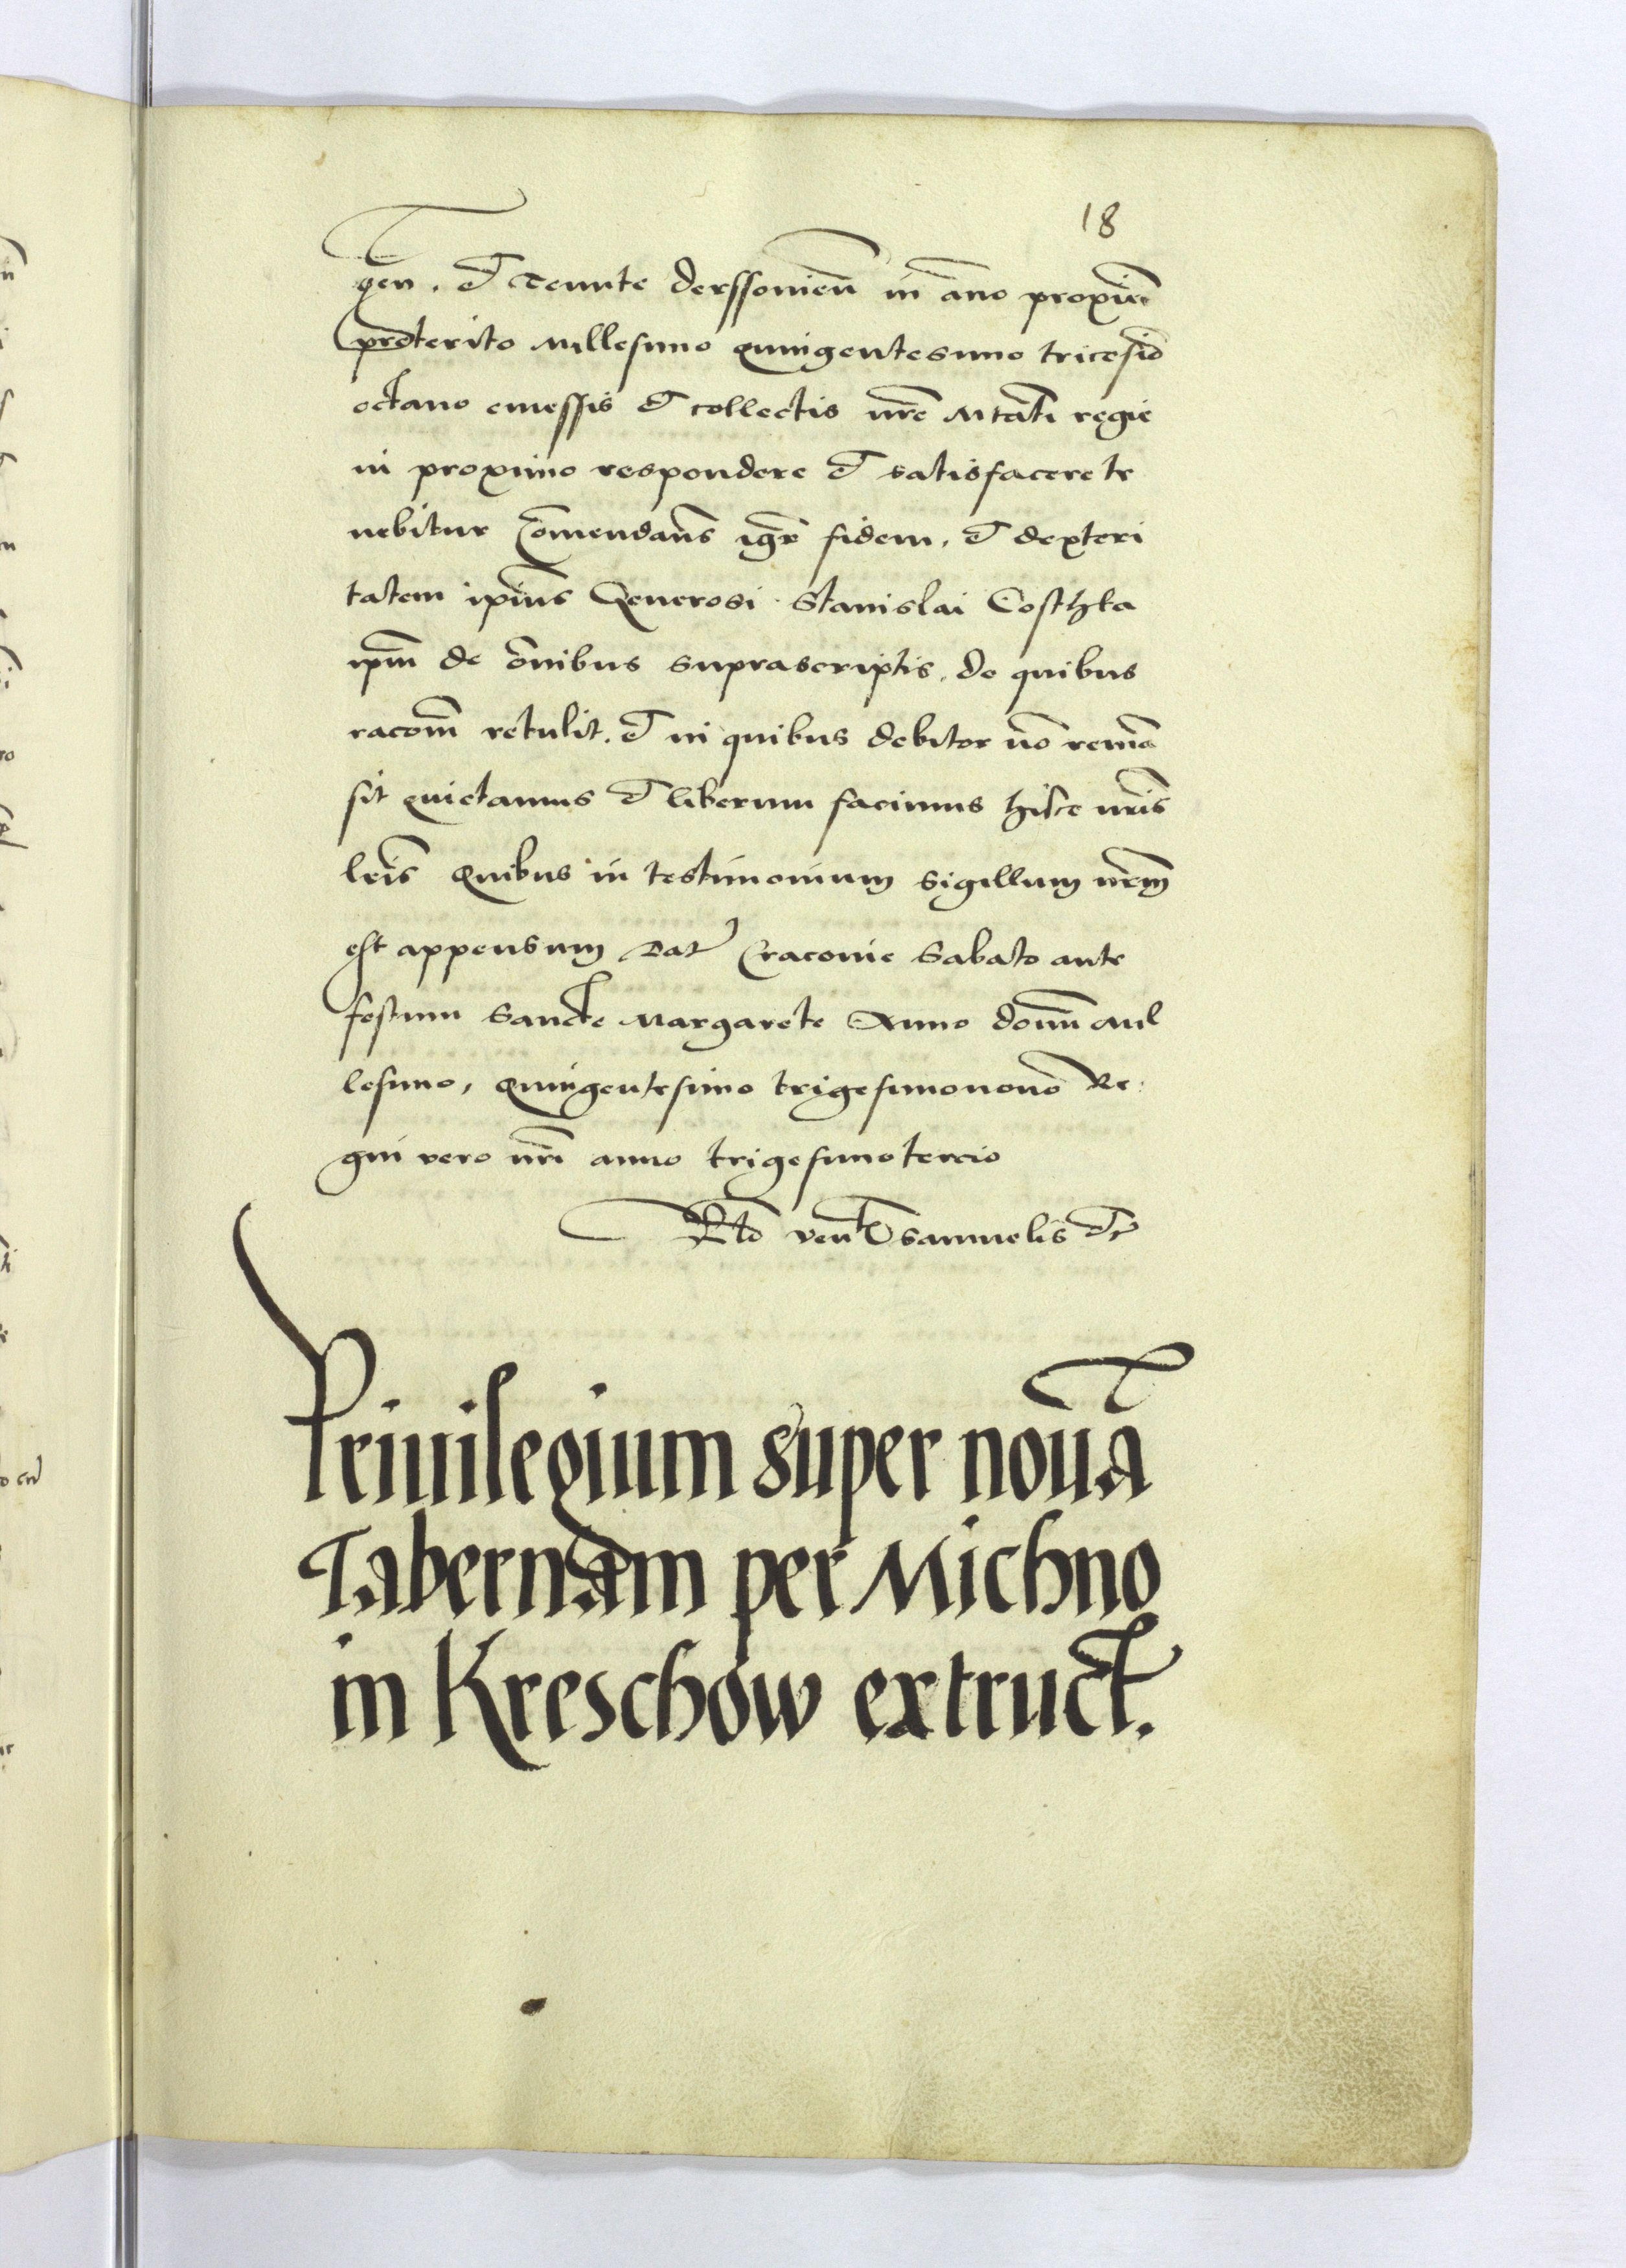 18
gen. et Tenute derssonien in ano proxime
preterito Millesimo quingentesimo tricesio
octavo emessis et collectis nre Mtati regie
in proximo respondere et satisfacere te
nebitur Comendans igr fidem, et dexteri
tatem ipius Generosi Stanislai Costhka
ipm de omibus suprascriptis, de quibus
racom retulit, et in quibus debitor no rema
sit quictamus et liberum facimus hisce nris
lris Quibus in testimonium sigillum nrm
est appensum Dat Cracovie Sabato ante
festum Sancte Margarete Anno domi Mil
lesimo, quingentesimo trigesimonono Re
gni vero nri anno trigesimotercio
Rlo ven Samuelis etc
Privilegium super nova
Tabernam per Michno
in Kreschow extruct.